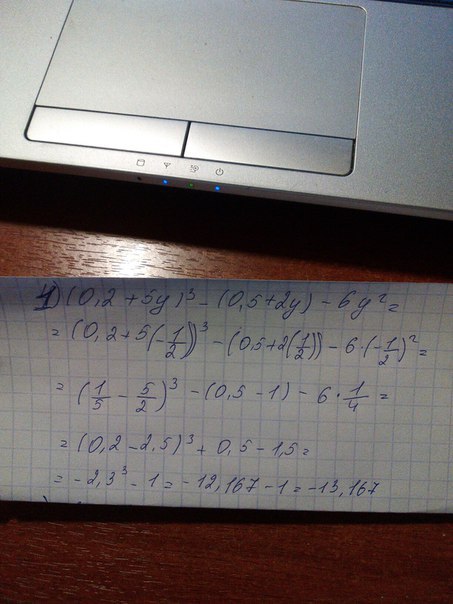 1) (0,2 + 5y)³ - (0,5 + 2y) - 6y² =
= (0,2 + 5(-1/2))³ - (0,5 + 2(1/2)) - 6·(-1/2)² =
= (1/5 - 5/2)³ - (0,5 - 1) - 6·1/4 =
= (0,2 - 2,5)³ + 0,5 - 1,5 =
= -2,3³ - 1 = -12,167 - 1 = -13,167